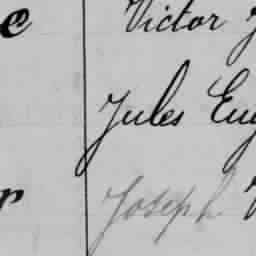 e Victor
Jules Eug
r Joseph